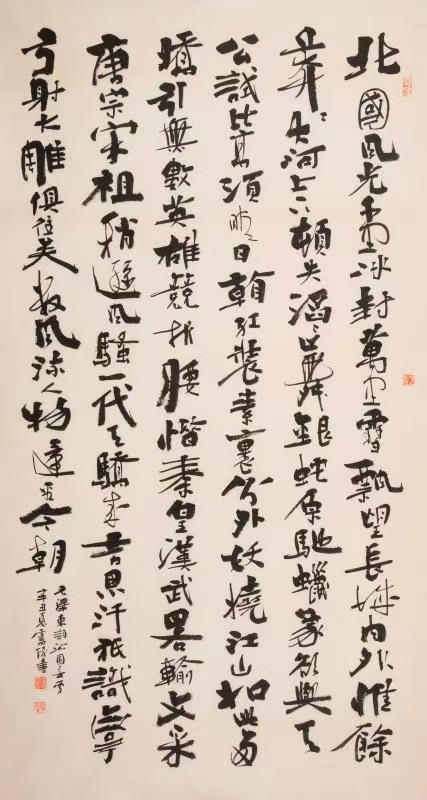 北國風光千里冰封萬里雪飄望長城内外惟餘
莽〻大河上下頓失滔〻山舞銀蛇原馳蠟象欲與天
公試比高須晴日看紅裝素裹分外妖嬈江山如此多
嬌引無數英雄競折腰惜秦皇漢武畧輸文采
唐宗宋祖稍遜風騷一代天驕成吉思汗祇識彎
弓射大雕俱往矣數風流人物還看今朝
毛澤東詞沁園春雪
辛丑夏書